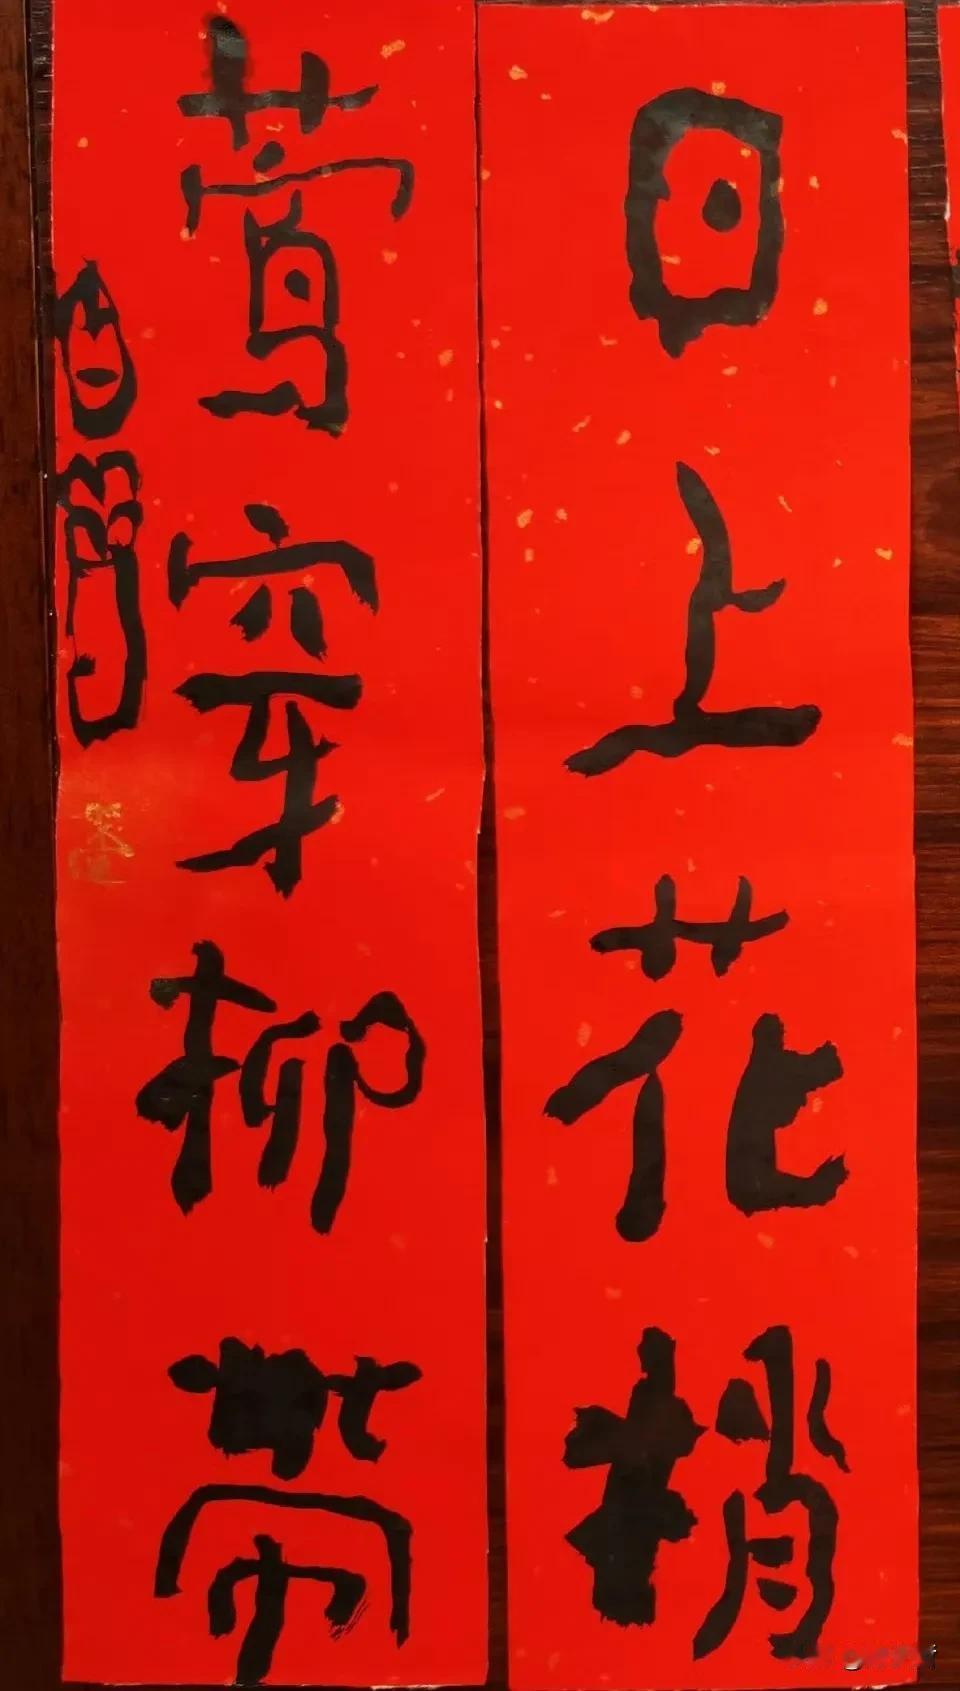 日上花梢
莺穿柳带